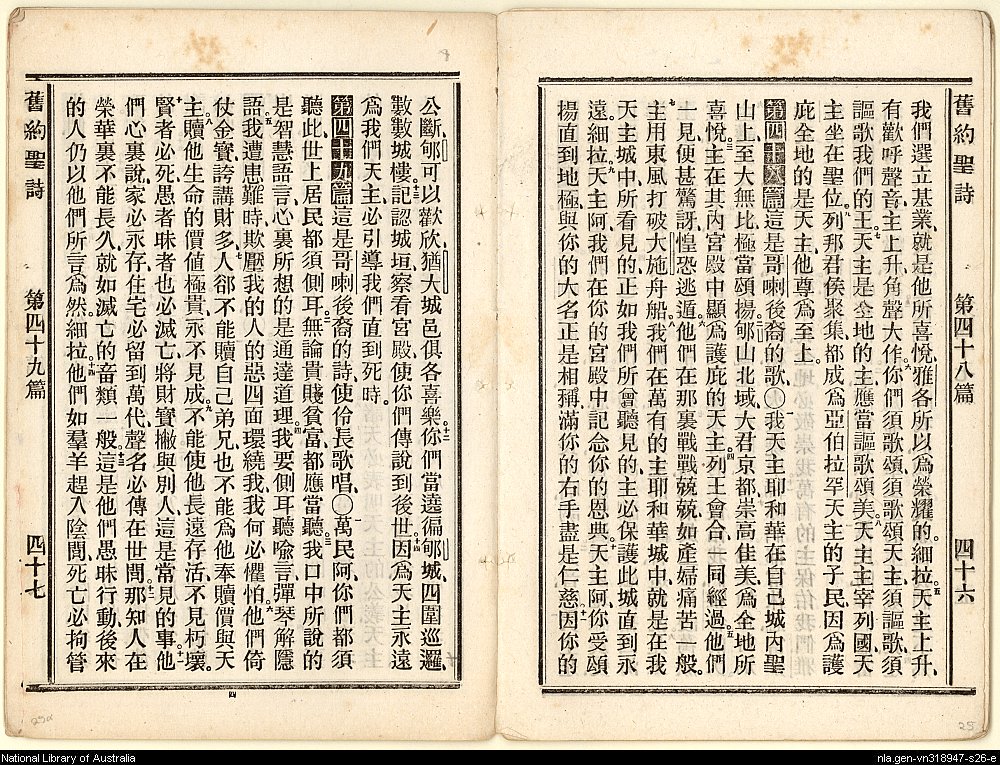 舊約聖詩 第四十八篇 四十六
我們選立基業、就是他所喜悅雅各所以爲榮耀的、細拉、五天主上升、
有歡呼聲音、主上升、角聲大作、六你們須歌頌、須歌頌天主、須謳歌、須
謳歌我們的王、七天主是全地的主、應當謳歌頌美、八天主主宰列國、天
主坐在聖位、九列邦君侯聚集、都成爲亞伯拉罕天主的子民、因爲護
庇全地的是天主、他尊爲至上。
第四十八篇 這是哥喇後裔的歌、〇一我天主耶和華在自己城內聖
山上、至大無比、極當頌揚、二郇山北域、大君京都、崇高佳美、爲全地所
喜悅、三主在其內宮殿中、顯爲護庇的天主、四列王會合、一同經過、五他們
一見便甚驚訝、惶恐逃遁、六他們在那裏戰戰兢兢、如產婦痛苦一般。
七主用東風打破大施舟船、八我們在萬有的主耶和華城中、就是在我
天主城中、所看見的、正如我們所曾聽見的、主必保護此城、直到永
遠、細拉、九天主阿、我們在你的宮殿中記念你的恩典、十天主阿、你受頌
揚、直到地極、與你的大名正是相稱、滿你的右手、盡是仁慈、十一因你的
舊約聖詩 第四十九篇 四十七
公斷、郇可以歡欣、猶大城邑俱各喜樂、十二你們當遶徧郇城、四圍巡邏、
數數城樓、十三記認城垣、察看宮殿、使你們傳說到後世、十四因爲天主永遠
爲我們天主、必引導我們直到死時。
第四十九篇 這是哥喇後裔的詩、使伶長歌唱、〇一萬民阿、你們都須
聽此、世上居民都須側耳、二無論貴賤貧富、都應當聽、三我口中所說的
是智慧語言、心裏所想的是通達道理、四我要側耳聽喩言、彈琴解隱
語、五我遭患難時、欺壓我的人的惡、四面環繞我、我何必懼怕、六他們倚
仗金寶、誇講財多、七人卻不能贖自己弟兄、也不能爲他奉贖價與天
主、八贖他生命的價値極貴、永不見成、九不能使他長遠存活、不見朽壞、
十賢者必死、愚者昧者也必滅亡、將財寶撇與別人、這是常見的事、十一他
們心裏說、家必永存、住宅必留到萬代、聲名必傳在世間、十二那知人在
榮華裏不能長久、就如滅亡的畜類一般、十三這是他們愚昧行動、後來
的人仍以他們所言爲然、細拉、十四他們如羣羊趕入陰間、死亡必拘管
四
25a
25
National Library of Australia
nla.gen-vn318947-s26-e